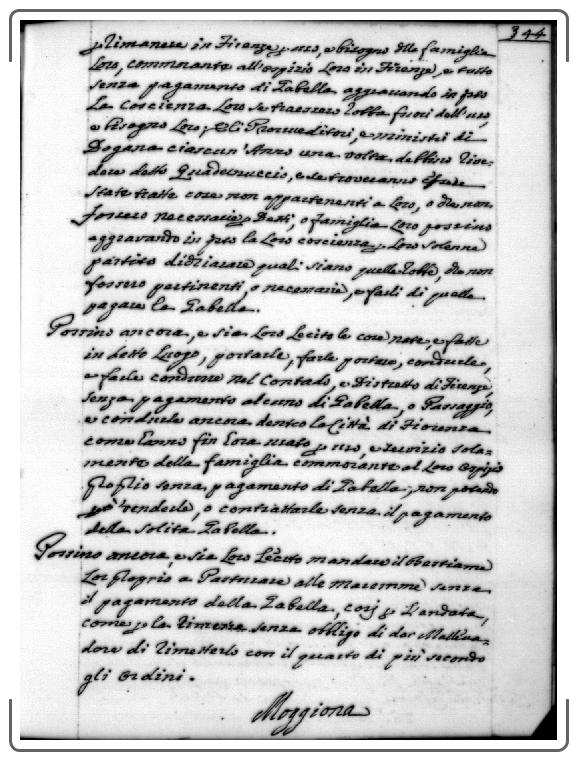 344
p rimanere in Firenze p uso, e bisogno dlle famiglie
Loro, commorante all'ospizio Loro in Firenze, e tutto
senza pagamento di Gabella aggravando in pto
La coscienza Loro se traessero robba fuori dell'uso,
e bisogno Loro; Gli Provveditori, e ministri di
Dogana ciascun'Anno una volta debbino rive-
dere detto Quadernuccio, e se troveranno
state tratte cose non appartenenti a Loro, o che non
fossero necessarie p Desti, o famiglia Loro possino
aggravando in pto la Loro coscienza p Loro solenne
partito dichiarare quali siano quelle robbe, che non
fossero pertinenti, o necessarie, e farli di quelle
pagare la Gabella.
Possino ancora, e sia Loro Lecito le cose nate, e fatte
in detto Luogo, portarle, farle portare, condurle,
e farle condurre nel Contado, e Distretto di Firenze,
senza pagamento alcuno di Gabella, o Passaggio,
e condurle ancora dentro la Città di Fiorenza
come Eanno fin Eora usato p uso, e servizio sola-
mente della famiglia commorante al Loro ospizio
pproprio senza pagamento di Gabella, non potendo
però venderle, o contrattarle senza il pagamento
della solita Gabella.
Possino ancora, e sia Loro Lecito mandare il Bestiame
Lor proprio a Pasturare alle maremme senza
il pagamento della Gabella, cosj p L'andata,
come p la rimessa senza obbligo di dar Mallva-
dore di rimetterlo con il quarto di più secondo
gli ordini.
Moggiona